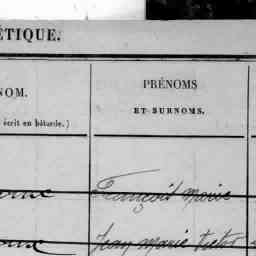 ÉTIQUE.
NOM. PRÉNOMS
écrit en bâtarde.) ET SURNOMS.
François Marie
Jean Marie Victor